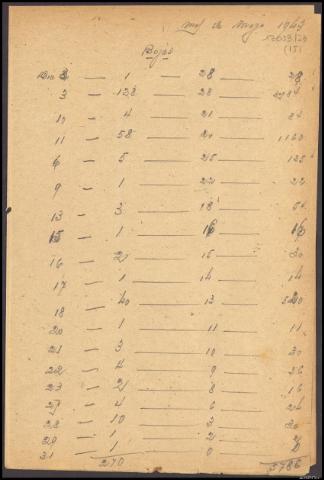 mes de Mayo 1947
(15)
Bajas
Dia 2 — 1 — 28 — 28
3 — 128 — 28
11 — 4 — 21 — 84
11 — 58 — 20 — 1160
6 — 5 — 25 — 125
9 — 1 — 22 — 22
13 — 3 — 18 — 54
15 — 1 — 16 — 16
16 — 2 — 15 — 30
17 — 1 — 14 — 14
18 — 40 — 13 — 520
20 — 1 — 11 — 11
21 — 3 — 10 — 30
22 — 4 — 9 — 36
23 — 2 — 8 — 16
27 — 4 — 6 — 24
28 — 10 — 3 — 30
29 — 1 — 2 — 2
31 — 1 — 0 — 0
270 5786